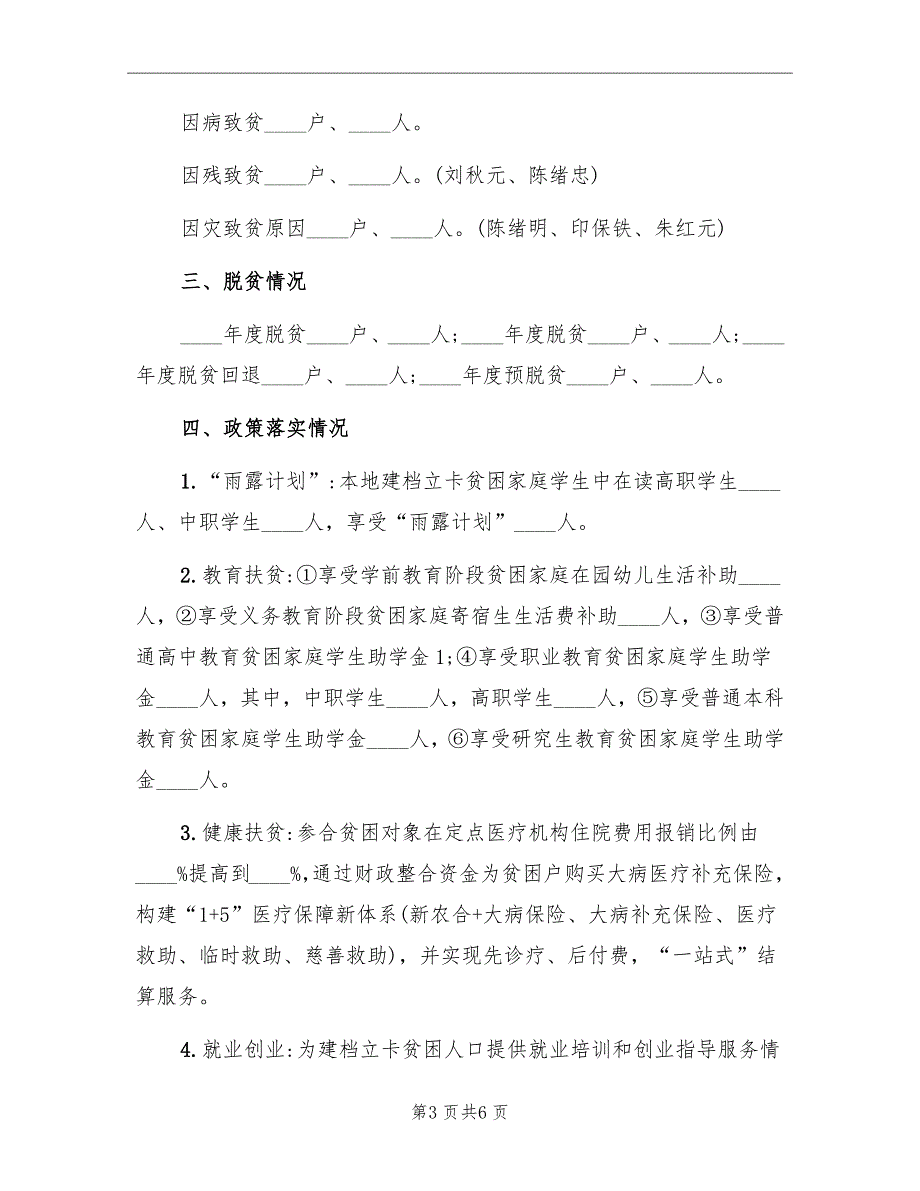 因病致贫____户、____人。
因残致贫____户、____人。(刘秋元、陈绪忠)
因灾致贫原因____户、____人。(陈绪明、印保铁、朱红元)
三、脱贫情况
____年度脱贫____户、____人;____年度脱贫____户、____人;____
年度脱贫回退____户、____人;____年度预脱贫____户、____人。
四、政策落实情况
1. “雨露计划”:本地建档立卡贫困家庭学生中在读高职学生____
人、中职学生____人，享受“雨露计划”____人。
2. 教育扶贫:①享受学前教育阶段贫困家庭在园幼儿生活补助____
人，②享受义务教育阶段贫困家庭寄宿生生活费补助____人，③享受普
通高中教育贫困家庭学生助学金1;④享受职业教育贫困家庭学生助学
金____人，其中，中职学生____人，高职学生____人，⑤享受普通本科
教育贫困家庭学生助学金____人，⑥享受研究生教育贫困家庭学生助学
金____人。
3. 健康扶贫:参合贫困对象在定点医疗机构住院费用报销比例由
____%提高到____%，通过财政整合资金为贫困户购买大病医疗补充保险，
构建“1+5”医疗保障新体系(新农合+大病保险、大病补充保险、医疗
救助、临时救助、慈善救助)，并实现先诊疗、后付费，“一站式”结
算服务。
4. 就业创业:为建档立卡贫困人口提供就业培训和创业指导服务情
第3 页共6 页